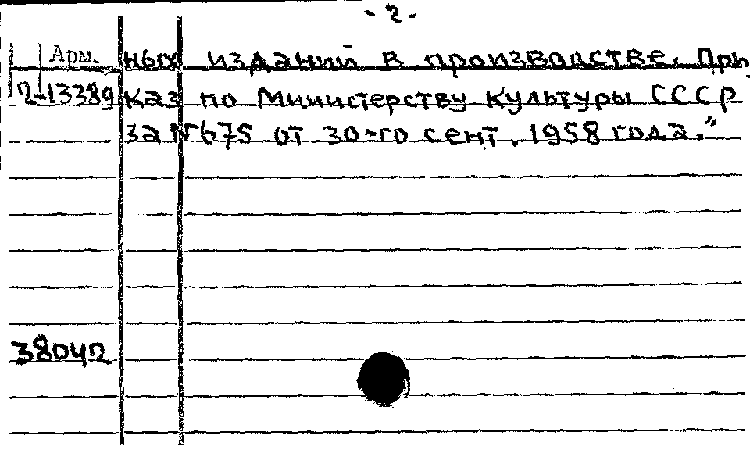 - 2 -
Арм. ных изданий в производстве. При
2-13389 каз по Министерству культуры СССР
за №675 от 30-го сент. 1958 года."
38042